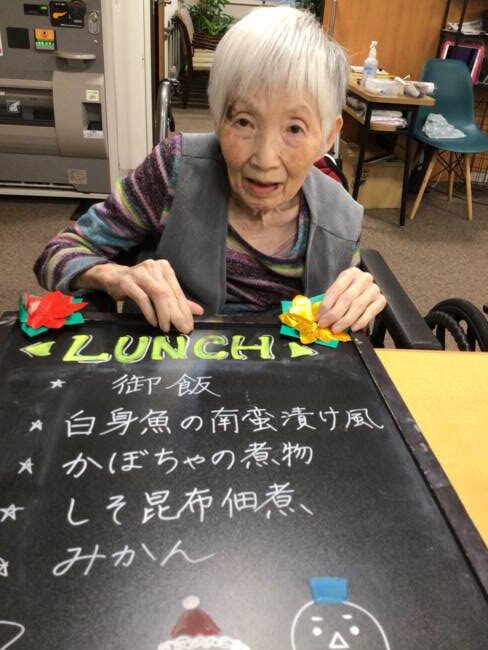 LUNCH
御飯
白身魚の南蛮漬け風
かぼちゃの煮物
しそ昆布佃煮
みかん